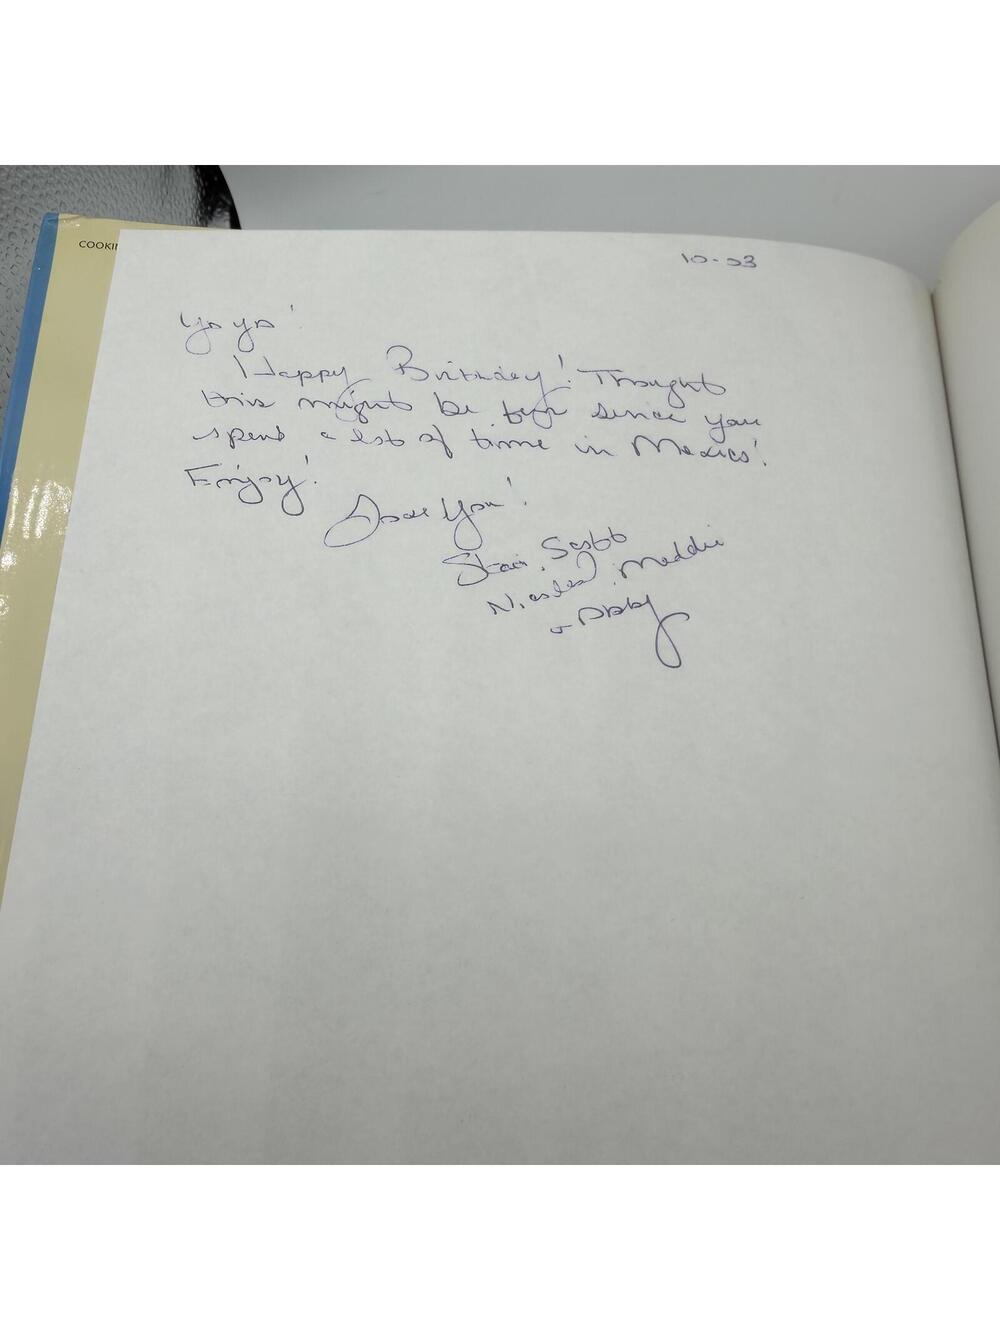 COOKIN
10-03
Yo yo!
Happy Birthday! Thought
this might be fun since you
spend a lot of time in Mexico!
Enjoy!
Love You!
Staci, Scott
Nicolas, Maddie
+ Abby